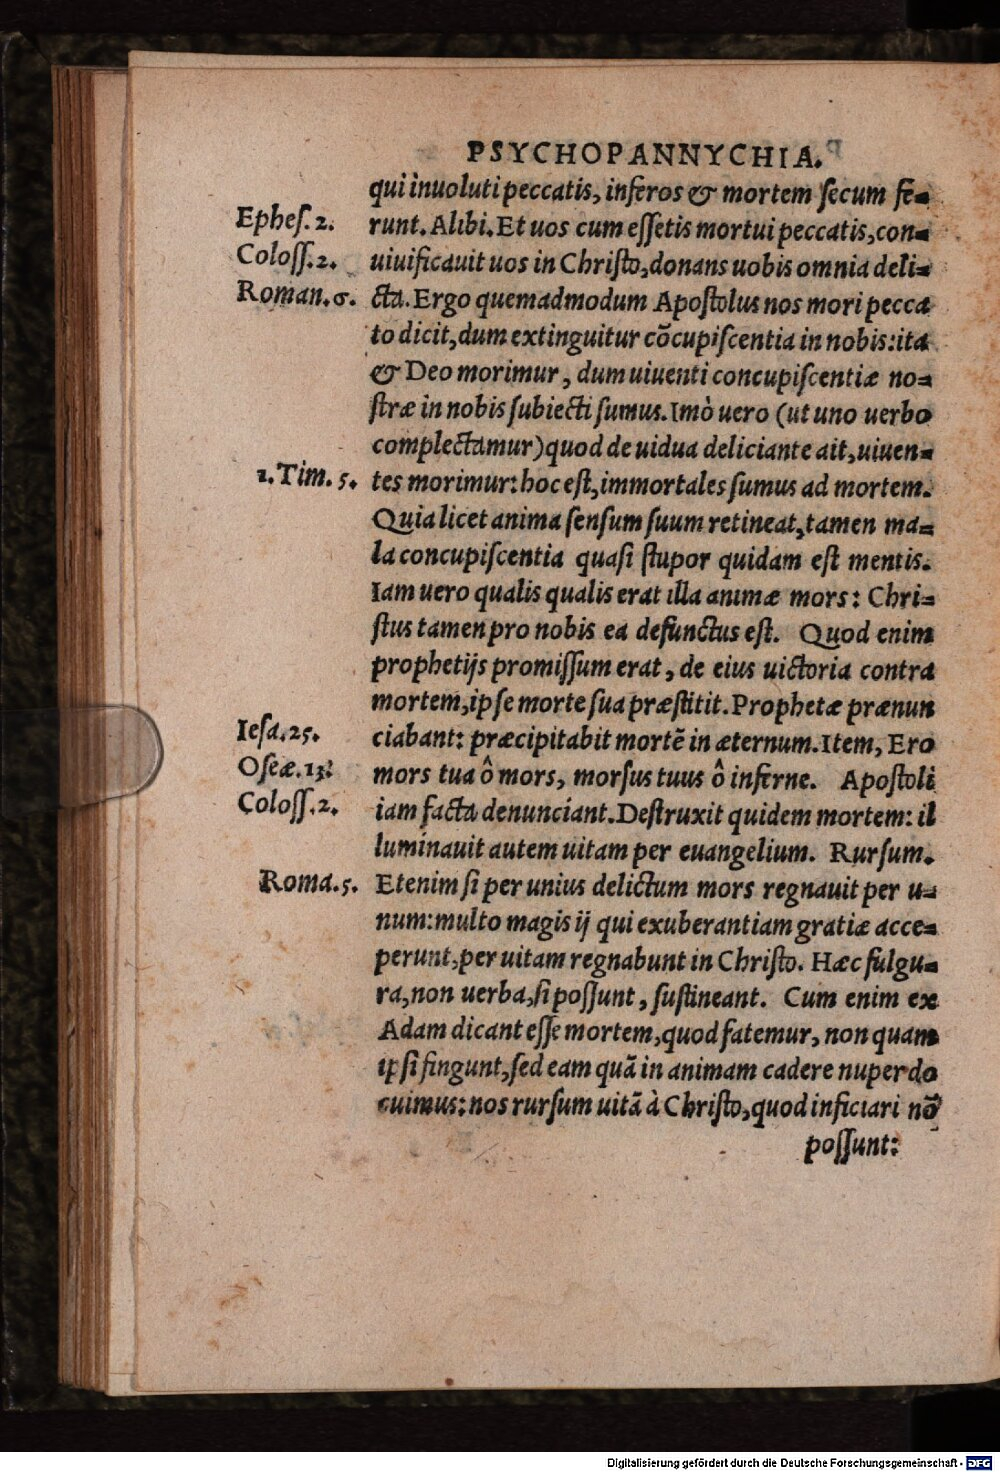 PSYCHOPANNYCHIA.
qui inuoluti peccatis, inferos & mortem secum fe-
Ephes. 2. runt. Alibi. Et uos cum essetis mortui peccatis, con-
Coloss. 2. uiuificauit uos in Christo, donans uobis omnia deli-
Roman. 6. cta. Ergo quemadmodum Apostolus nos mori pecca
to dicit, dum extinguitur cõcupiscentia in nobis: ita
& Deo morimur, dum uiuenti concupiscentiæ no-
stræ in nobis subiecti sumus. Imò uero (ut uno uerbo
complectamur) quod de uidua deliciante ait, uiuen-
1. Tim. 5. tes morimur: hoc est, immortales sumus ad mortem.
Quia licet anima sensum suum retineat, tamen ma-
la concupiscentia quasi stupor quidam est mentis.
Iam uero qualis qualis erat illa animæ mors: Chri-
stus tamen pro nobis ea defunctus est. Quod enim
prophetijs promissum erat, de eius uictoria contra
mortem, ipse morte sua præstitit. Prophetæ prænun
Iesa. 25. ciabant: præcipitabit mortẽ in æternum. Item, Ero
Oseæ. 13. mors tua ô mors, morsus tuus ô inferne. Apostoli
Coloss. 2. iam facta denunciant. Destruxit quidem mortem: il
luminauit autem uitam per euangelium. Rursum.
Roma. 5. Etenim si per unius delictum mors regnauit per u-
num: multo magis ij qui exuberantiam gratiæ acce-
perunt, per uitam regnabunt in Christo. Hæc fulgu-
ra, non uerba, si possunt, sustineant. Cum enim ex
Adam dicant esse mortem, quod fatemur, non quam
ipsi fingunt, sed eam quã in animam cadere nuper do
cuimus: nos rursum uitã à Christo, quod inficiari nõ
possunt:
Digitalisierung gefördert durch die Deutsche Forschungsgemeinschaft - DFG